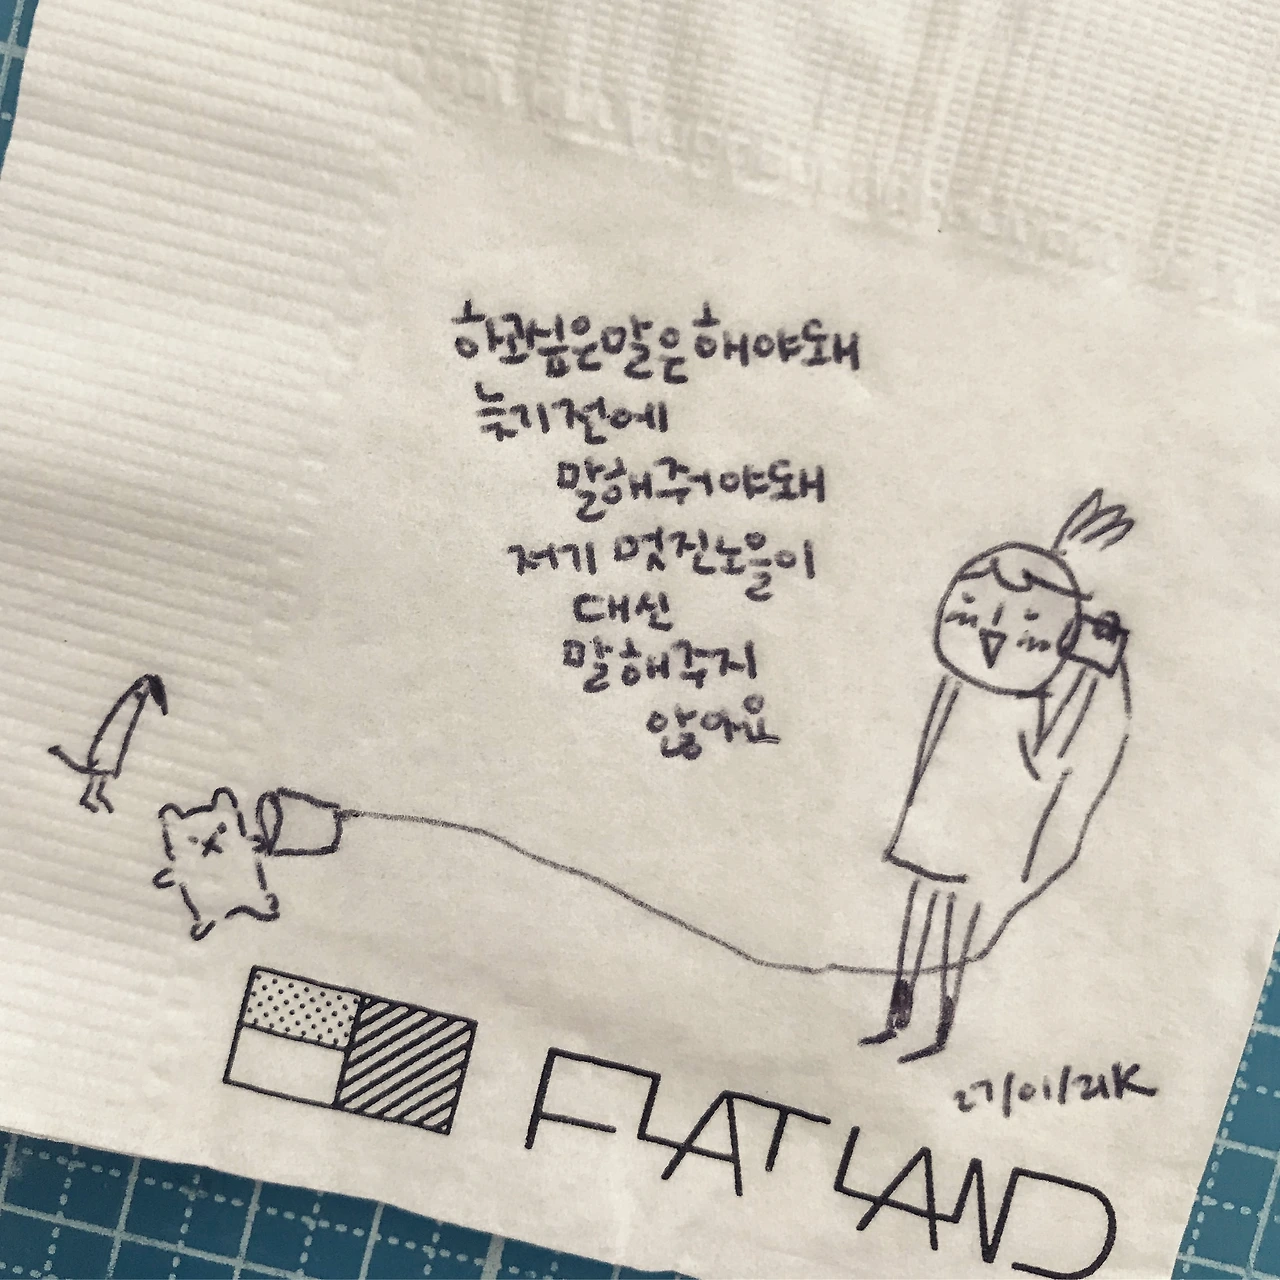 하고싶은말은해야돼
늦기전에
말해줘야돼
저기 멋진노을이
대신
말해주지
않아요
27/01/21K
FLATLAND